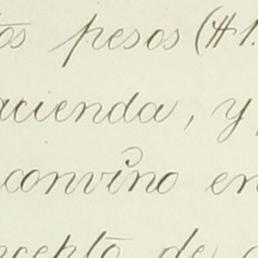 tos pesos (#1.
acienda, y
convino en
ncepto de